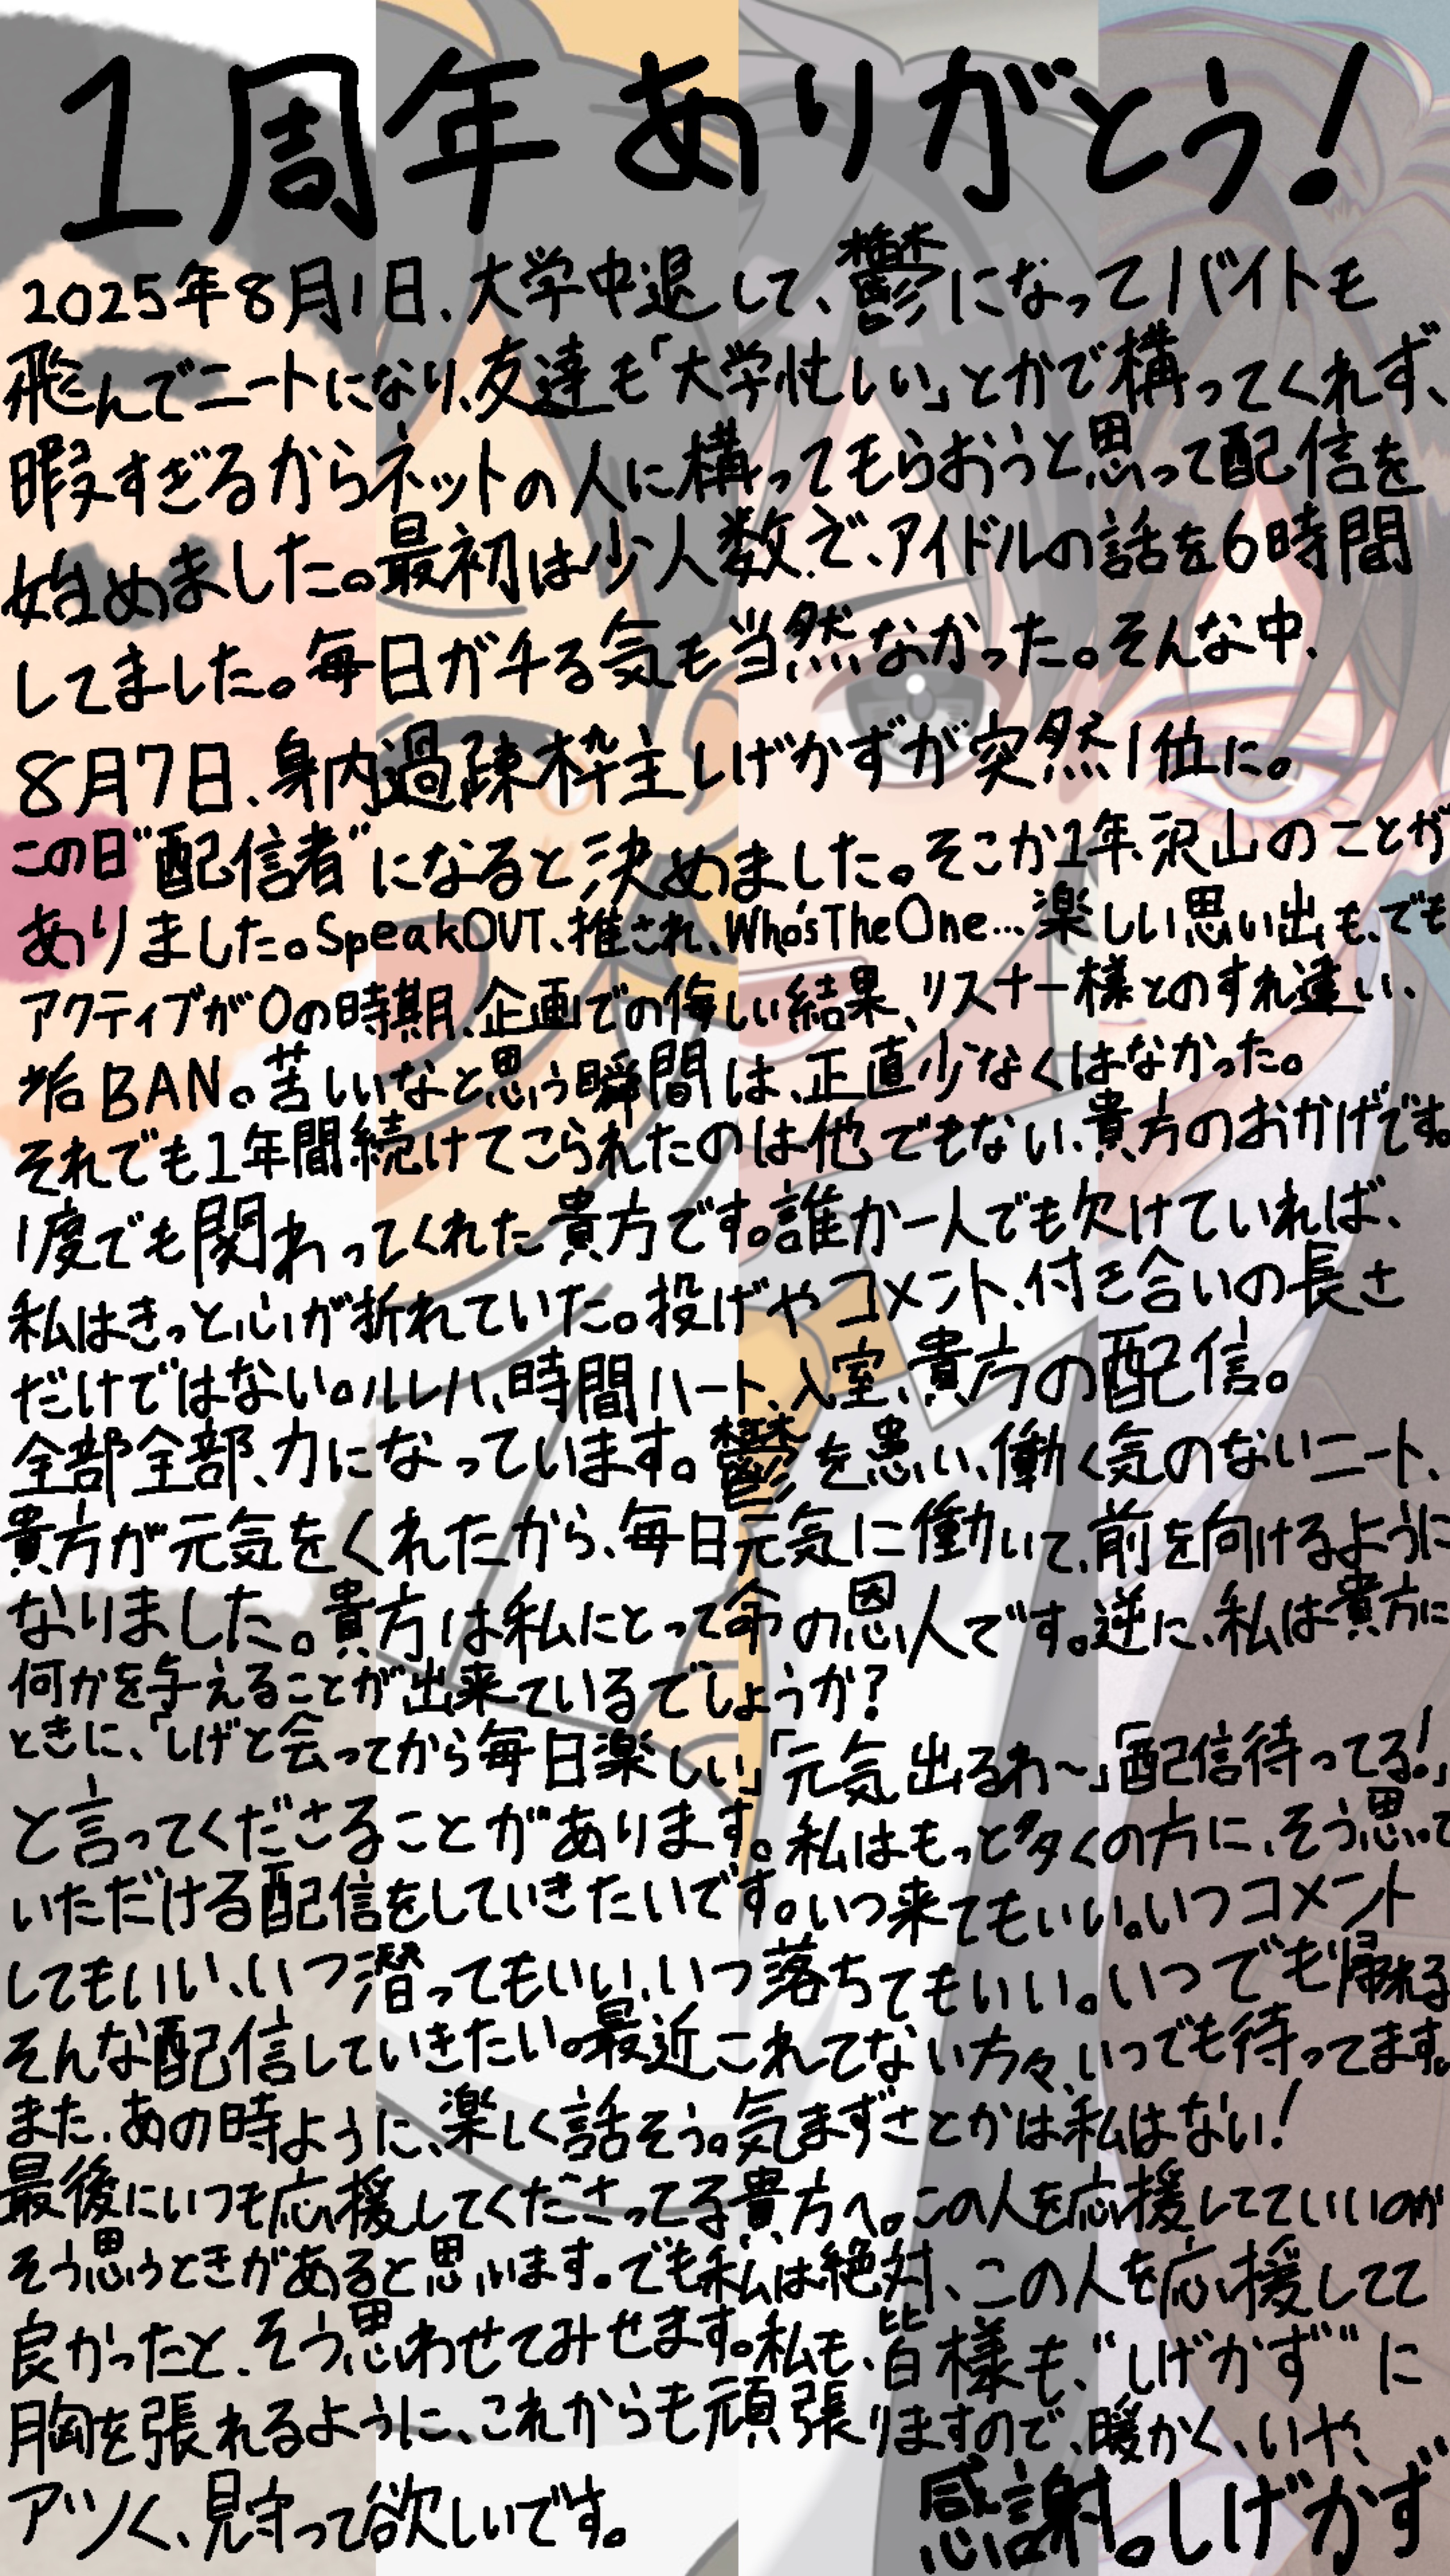 1周年ありがとう!
2025年8月1日、大学中退して、鬱になってバイトも
飛んでニートになり、友達も「大学忙しい」とかで構ってくれず、
暇すぎるからネットの人に構ってもらおうと思って配信を
始めました。最初は少人数で、アイドルの話を6時間
してました。毎日ガチる気も当然なかった。そんな中、
8月7日、身内過疎枠主しげかずが突然1位に。
この日"配信者"になると決めました。そこか1年、沢山のことが
ありました。SpeakOUT、推され、Who'sTheOne...楽しい思い出も、でも
アクティブが0の時期、企画での悔しい結果、リスナー様とのすれ違い、
垢BAN。苦しいなと思う瞬間は、正直少なくはなかった。
それでも1年間続けてこられたのは他でもない、貴方のおかげです。
1度でも関わってくれた貴方です。誰か一人でも欠けていれば、
私はきっと心が折れていた。投げやコメント、付き合いの長さ
だけではない。ルレハ、時間ハート、入室、貴方の配信。
全部全部、力になっています。鬱を患い、働く気のないニート、
貴方が元気をくれたから、毎日元気に働いて、前を向けるように
なりました。貴方は私にとって命の恩人です。逆に、私は貴方に
何かを与えることが出来ているでしょうか?
ときに、「しげと会ってから毎日楽しい」「元気出るわ~」「配信待ってる!」
と言ってくださることがあります。私はもっと多くの方に、そう思って
いただける配信をしていきたいです。いつ来てもいい。いつコメント
してもいい、いつ潜ってもいい、いつ落ちてもいい。いつでも帰れる
そんな配信していきたい。最近これてない方々、いつでも待ってます。
また、あの時ように、楽しく話そう。気まずさとかは私はない!
最後にいつも応援してくださってる貴方へ。この人を応援してていいのか
そう思うときがあると思います。でも私は絶対、この人を応援してて
良かったと、そう思わせてみせます。私も、皆様も、"しげかず"に
胸を張れるように、これからも頑張りますので、暖かく、いや、
アツく、見守って欲しいです。
感謝。しげかず